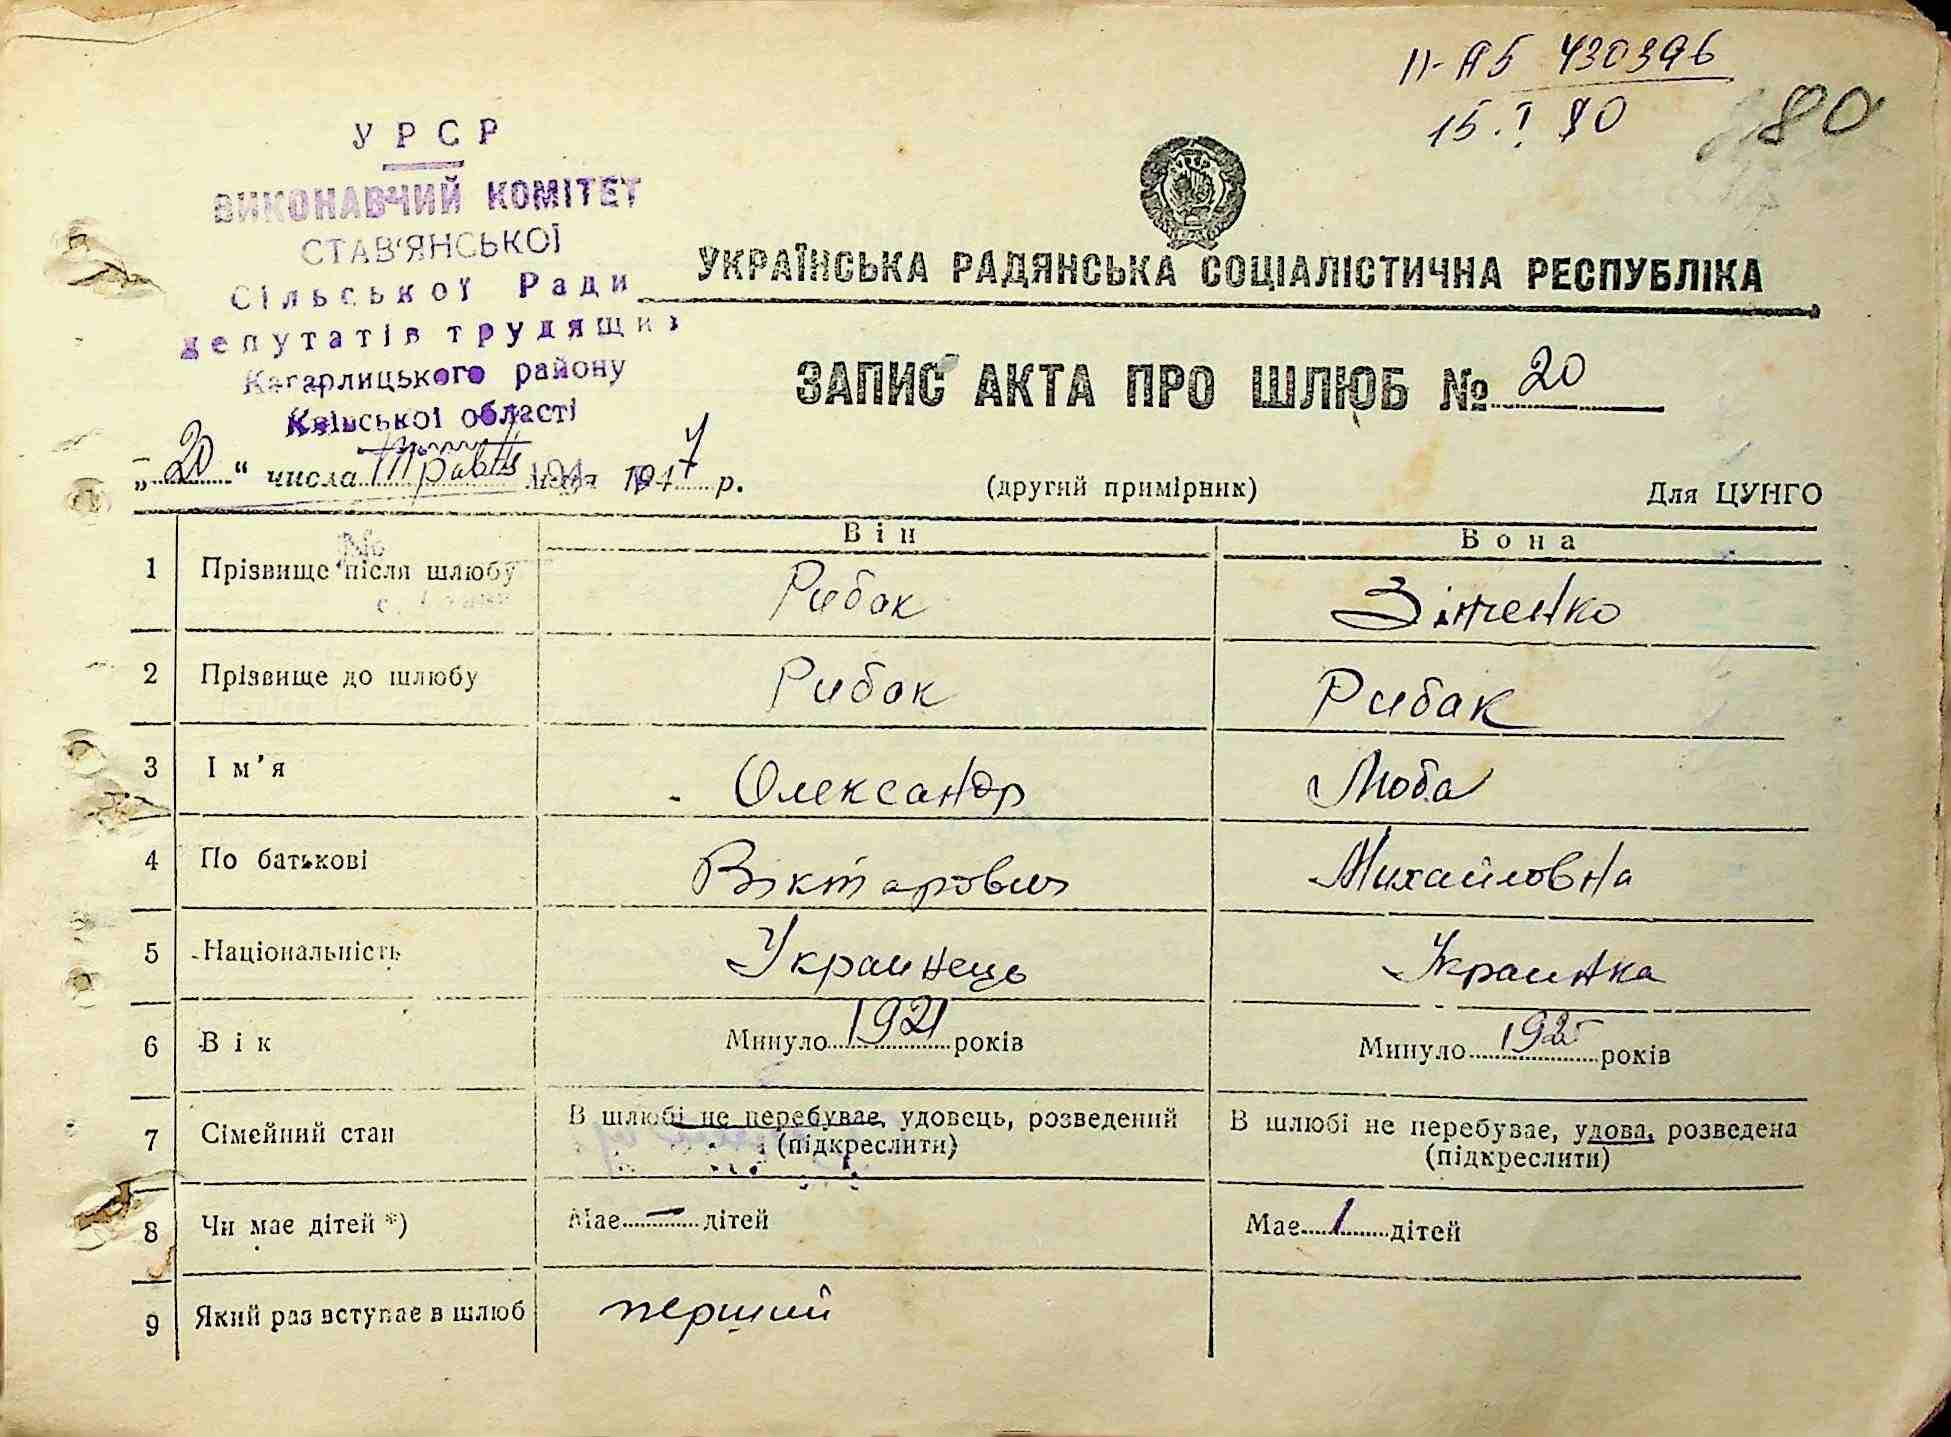 II-АБ 430396
15.I 80
80
УРСР
ВИКОНАВЧИЙ КОМІТЕТ
СТАВ'ЯНСЬКОЇ
Сільської Ради
депутатів трудящих
Кагарлицького району
Київської області
УКРАЇНСЬКА РАДЯНСЬКА СОЦІАЛІСТИЧНА РЕСПУБЛІКА
ЗАПИС АКТА ПРО ШЛЮБ № 20
„20“ числа травня м-ця 1947 р.
(другий примірник) Для ЦУНГО
Він Вона
1 Прізвище після шлюбу Рибак Зінченко
2 Прізвище до шлюбу Рибак Рибак
3 Ім'я Олександр Люба
4 По батькові Вікторович Михайловна
5 Національність Украинець Украинка
6 Вік Минуло 1921 років Минуло 1925 років
7 Сімейний стан В шлюбі не перебуває, удовець, розведений (підкреслити) В шлюбі не перебуває, удова, розведена (підкреслити)
8 Чи має дітей *) Має — дітей Має 1 дітей
9 Який раз вступає в шлюб перший